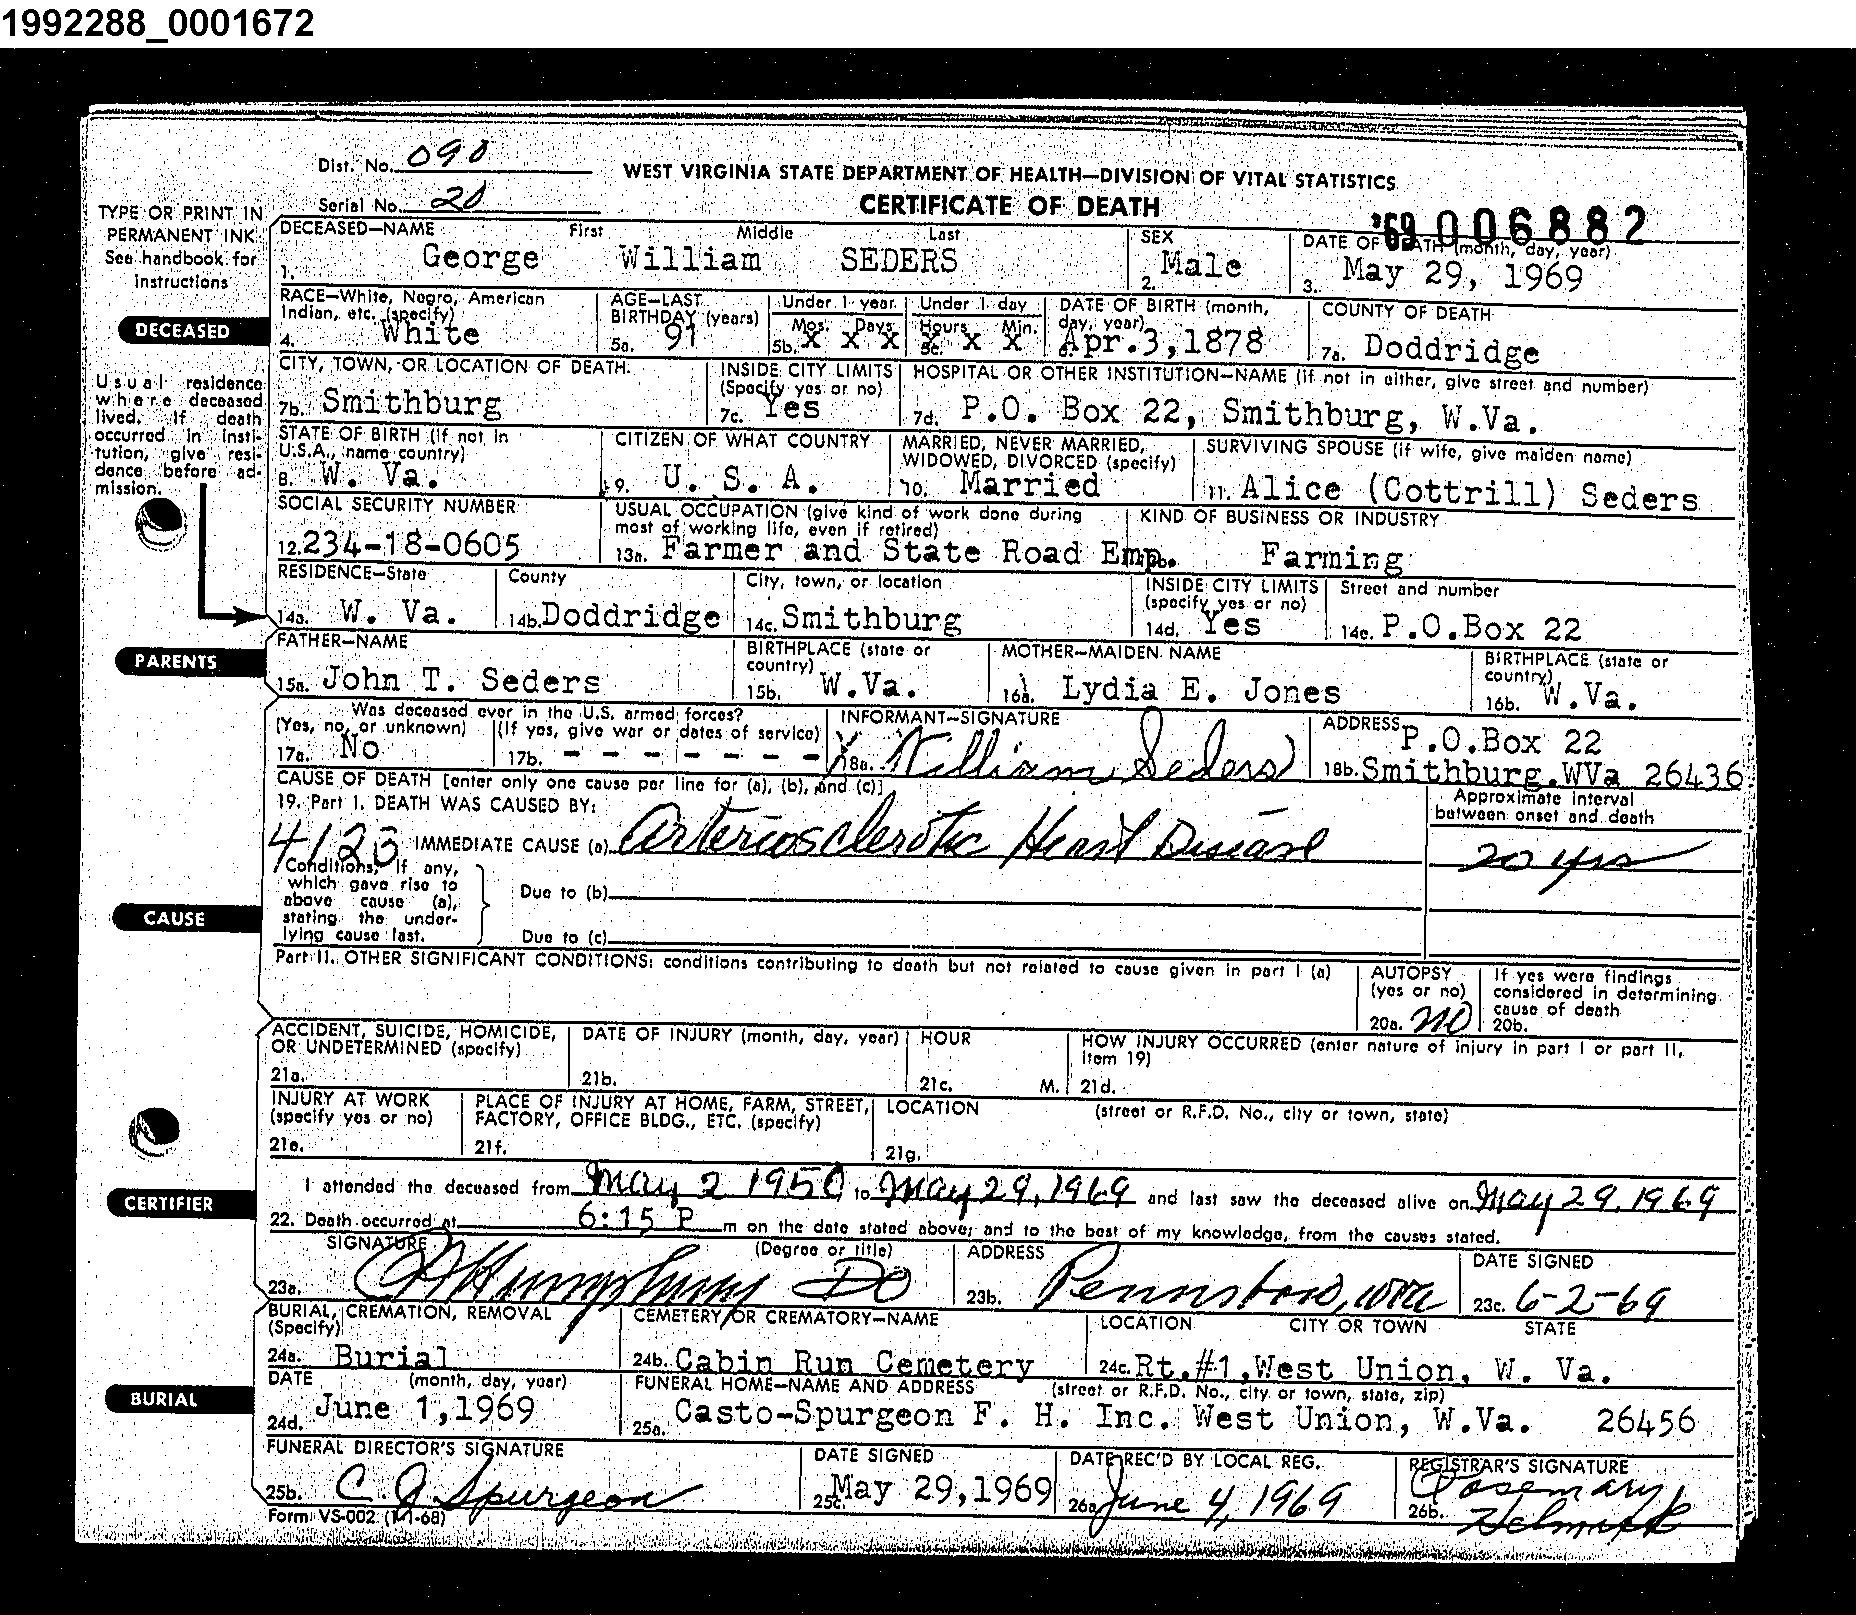 1992288_0001672
Dist. No. 090
WEST VIRGINIA STATE DEPARTMENT OF HEALTH—DIVISION OF VITAL STATISTICS
Serial No. 20
CERTIFICATE OF DEATH
'69 006882
TYPE OR PRINT IN
PERMANENT INK
See handbook for
instructions
DECEASED
Usual residence
where deceased
lived. If death
occurred in insti-
tution, give resi-
dence before ad-
mission.
DECEASED—NAME First Middle Last
1. George William SEDERS
SEX
2. Male
DATE OF DEATH (month, day, year)
3. May 29, 1969
RACE—White, Negro, American
Indian, etc. (specify)
4. White
AGE—LAST
BIRTHDAY (years)
5a. 91
Under 1 year
Mos. Days
5b. X X X
Under 1 day
Hours Min.
5c. X X X
DATE OF BIRTH (month,
day, year)
6. Apr.3,1878
COUNTY OF DEATH
7a. Doddridge
CITY, TOWN, OR LOCATION OF DEATH
7b. Smithburg
INSIDE CITY LIMITS
(Specify yes or no)
7c. Yes
HOSPITAL OR OTHER INSTITUTION—NAME (if not in either, give street and number)
7d. P.O. Box 22, Smithburg, W.Va.
STATE OF BIRTH (if not in
U.S.A., name country)
8. W. Va.
CITIZEN OF WHAT COUNTRY
9. U. S. A.
MARRIED, NEVER MARRIED,
WIDOWED, DIVORCED (specify)
10. Married
SURVIVING SPOUSE (if wife, give maiden name)
11. Alice (Cottrill) Seders
SOCIAL SECURITY NUMBER
12. 234-18-0605
USUAL OCCUPATION (give kind of work done during
most of working life, even if retired)
13a. Farmer and State Road Emp.
KIND OF BUSINESS OR INDUSTRY
13b. Farming
RESIDENCE—State
14a. W. Va.
County
14b. Doddridge
City, town, or location
14c. Smithburg
INSIDE CITY LIMITS
(specify yes or no)
14d. Yes
Street and number
14e. P.O.Box 22
PARENTS
FATHER—NAME
15a. John T. Seders
BIRTHPLACE (state or
country)
15b. W.Va.
MOTHER—MAIDEN NAME
16a. Lydia E. Jones
BIRTHPLACE (state or
country)
16b. W.Va.
Was deceased ever in the U.S. armed forces?
(Yes, no, or unknown) (If yes, give war or dates of service)
17a. No 17b. - - - - - - -
INFORMANT—SIGNATURE
X 18a. William Seders
ADDRESS P.O.Box 22
18b. Smithburg.WVa 26436
CAUSE
CAUSE OF DEATH [enter only one cause per line for (a), (b), and (c)]
19. Part I. DEATH WAS CAUSED BY:
Approximate interval
between onset and death
4123 IMMEDIATE CAUSE (a) Arteriosclerotic Heart Disease 20 yrs
Conditions, if any,
which gave rise to
above cause (a),
stating the under-
lying cause last.
Due to (b)
Due to (c)
Part II. OTHER SIGNIFICANT CONDITIONS: conditions contributing to death but not related to cause given in part I (a)
AUTOPSY
(yes or no)
20a. NO
If yes were findings
considered in determining
cause of death
20b.
ACCIDENT, SUICIDE, HOMICIDE,
OR UNDETERMINED (specify)
21a.
DATE OF INJURY (month, day, year)
21b.
HOUR
21c. M.
HOW INJURY OCCURRED (enter nature of injury in part I or part II,
item 19)
21d.
INJURY AT WORK
(specify yes or no)
21e.
PLACE OF INJURY AT HOME, FARM, STREET,
FACTORY, OFFICE BLDG., ETC. (specify)
21f.
LOCATION (street or R.F.D. No., city or town, state)
21g.
CERTIFIER
I attended the deceased from May 2 1950 to May 29, 1969 and last saw the deceased alive on May 29, 1969
22. Death occurred at 6:15 P m on the date stated above; and to the best of my knowledge, from the causes stated.
SIGNATURE (Degree or title)
23a. Humphrey DO
ADDRESS
23b. Pennsboro, WVa
DATE SIGNED
23c. 6-2-69
BURIAL
BURIAL, CREMATION, REMOVAL
(Specify)
24a. Burial
CEMETERY OR CREMATORY—NAME
24b. Cabin Run Cemetery
LOCATION CITY OR TOWN STATE
24c. Rt.#1,West Union, W. Va.
DATE (month, day, year)
24d. June 1,1969
FUNERAL HOME—NAME AND ADDRESS (street or R.F.D. No., city or town, state, zip)
25a. Casto-Spurgeon F. H. Inc. West Union, W.Va. 26456
FUNERAL DIRECTOR'S SIGNATURE
25b. C. J Spurgeon
DATE SIGNED
25c. May 29,1969
DATE REC'D BY LOCAL REG.
26a. June 4, 1969
REGISTRAR'S SIGNATURE
26b. Rosemary
Form VS-002 (1-1-68)